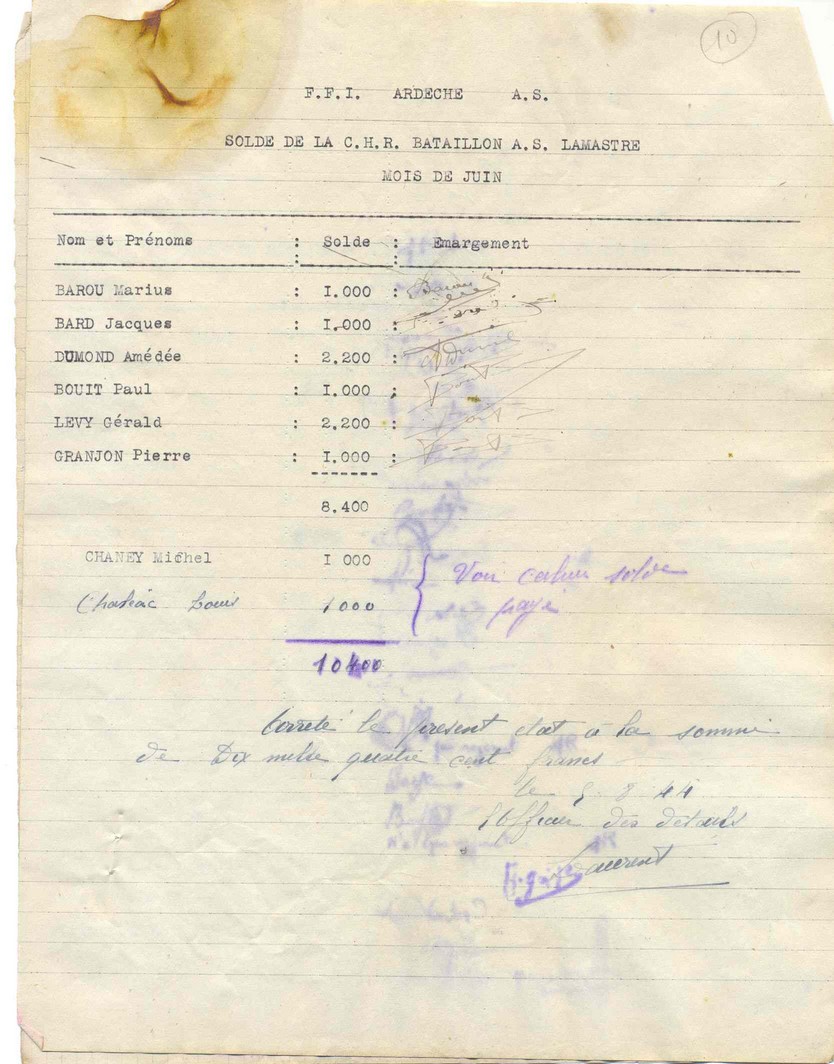 10
F.F.I. ARDECHE A.S.
SOLDE DE LA C.H.R. BATAILLON A.S. LAMASTRE
MOIS DE JUIN
Nom et Prénoms : Solde : Emargement
BAROU Marius : I.000 : Barou
BARD Jacques : I.000 :
DUMOND Amédée : 2.200 :
BOUIT Paul : I.000 :
LEVY Gérald : 2.200 :
GRANJON Pierre : I.000 :
8.400
CHANEY Michel I 000
Louis 1000
Voir cahier solde
payé
10400
Arrêté le présent état à la somme
de Dix mille quatre cent francs
le 5 8 44
l'Officier des détails
Laurent